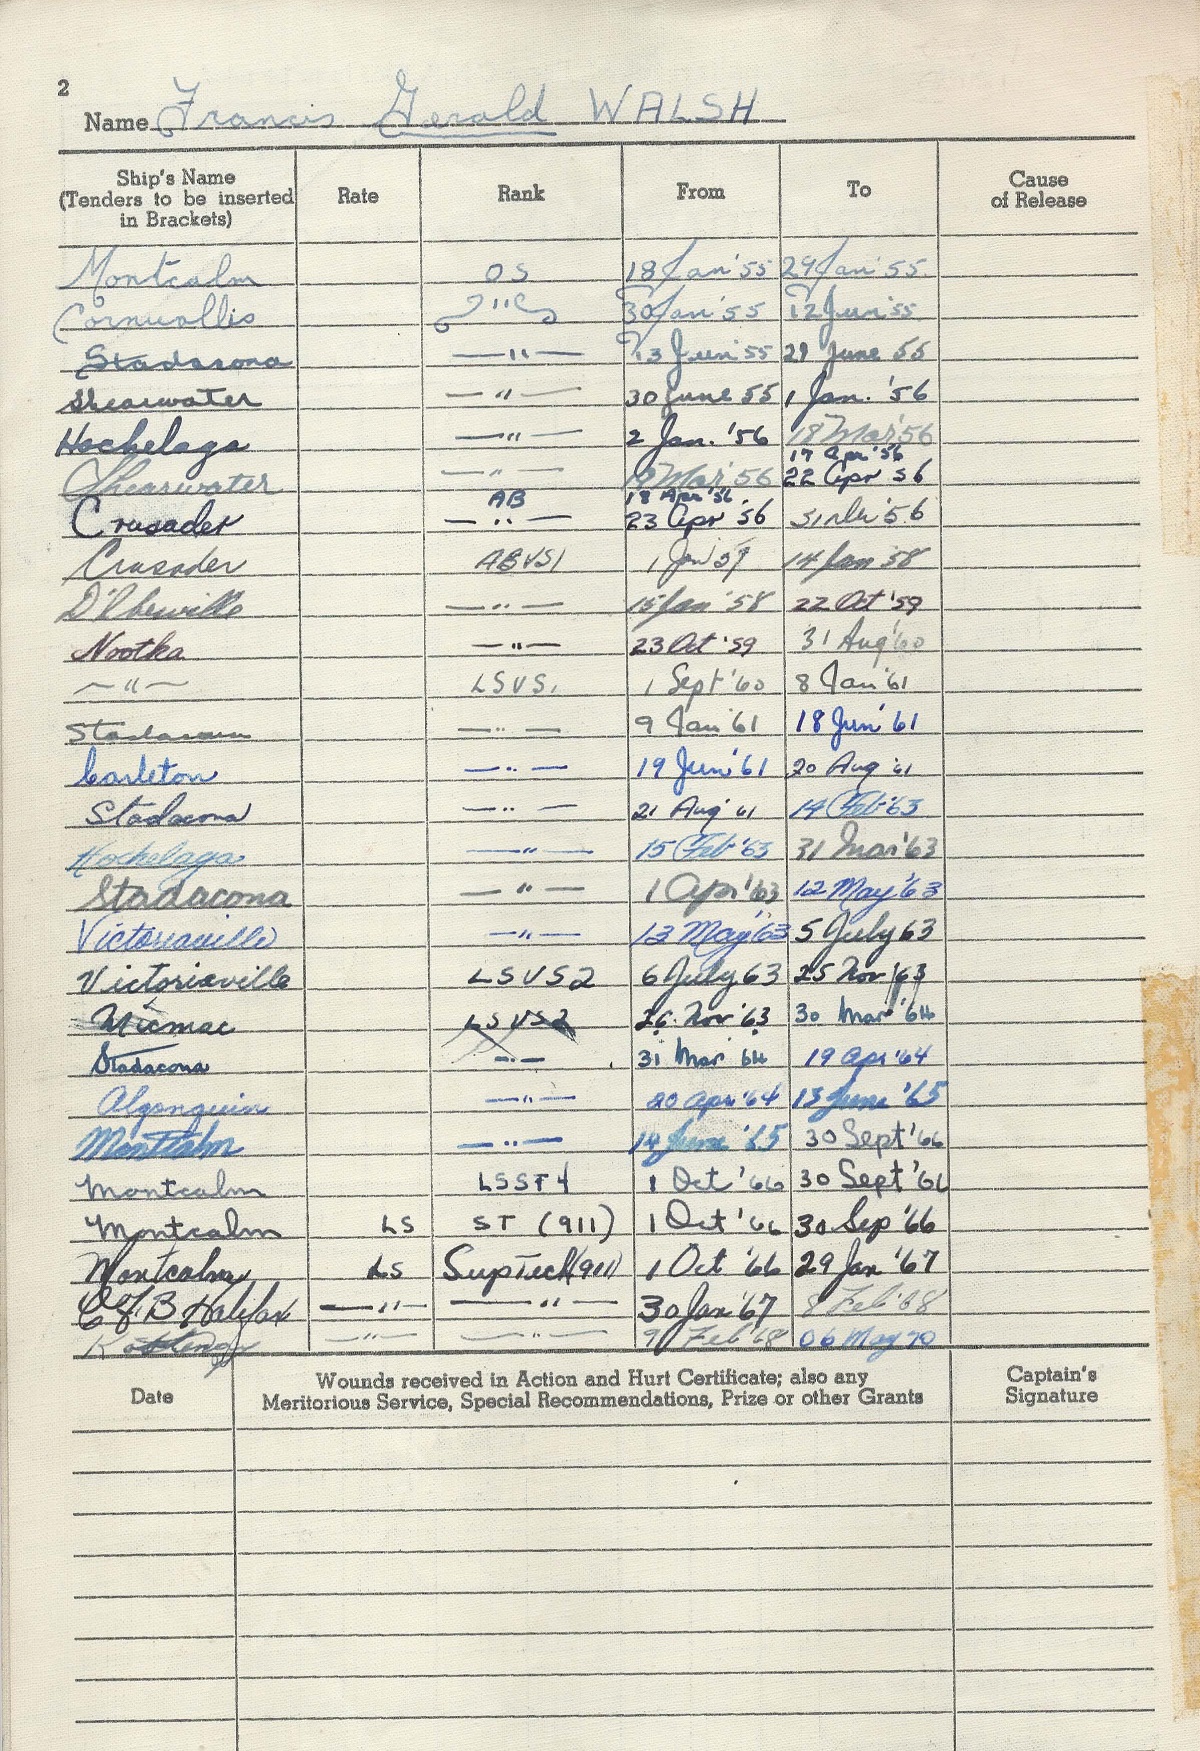 2
Name Francis Gerald WALSH
Ship's Name (Tenders to be inserted in Brackets) Rate Rank From To Cause of Release
Montcalm OS 18 Jan '55 29 Jan '55
Cornwallis " 30 Jan '55 12 Jun '55
Stadacona — " — 13 Jun '55 29 June 55
Shearwater — " — 30 June 55 1 Jan. '56
Hochelaga — " — 2 Jan. '56 18 Mar '56
17 Apr '56
Shearwater — " — 19 Mar '56 22 Apr 56
AB 18 Apr '56
Crusader — " — 23 Apr '56 31 Dec '56
Crusader ABVS1 1 Jan '57 14 Jan '58
D'Iberville — " — 15 Jan '58 22 Oct '59
Nootka — " — 23 Oct '59 31 Aug '60
— " — LSVS1 1 Sept '60 8 Jan '61
Stadacona — " — 9 Jan '61 18 Jun '61
Carleton — " — 19 Jun '61 20 Aug '61
Stadacona — " — 21 Aug '61 14 Feb '63
Hochelaga — " — 15 Feb '63 31 Mar '63
Stadacona — " — 1 Apr '63 12 May '63
Victoriaville — " — 13 May '63 5 July 63
Victoriaville LSVS2 6 July 63 25 Nov '63
Micmac LSVS2 26 Nov '63 30 Mar '64
Stadacona — " — 31 Mar '64 19 Apr '64
Algonquin — " — 20 Apr '64 13 June '65
Montcalm — " — 14 June '65 30 Sept '66
Montcalm LSST4 1 Oct '66 30 Sept '66
Montcalm LS ST (911) 1 Oct '66 30 Sep '66
Montcalm LS SupTech(911) 1 Oct '66 29 Jan '67
CFB Halifax — " — — " — 30 Jan '67 8 Feb '68
Kootenay — " — — " — 9 Feb '68 06 May 70
Date Wounds received in Action and Hurt Certificate; also any Meritorious Service, Special Recommendations, Prize or other Grants Captain's Signature